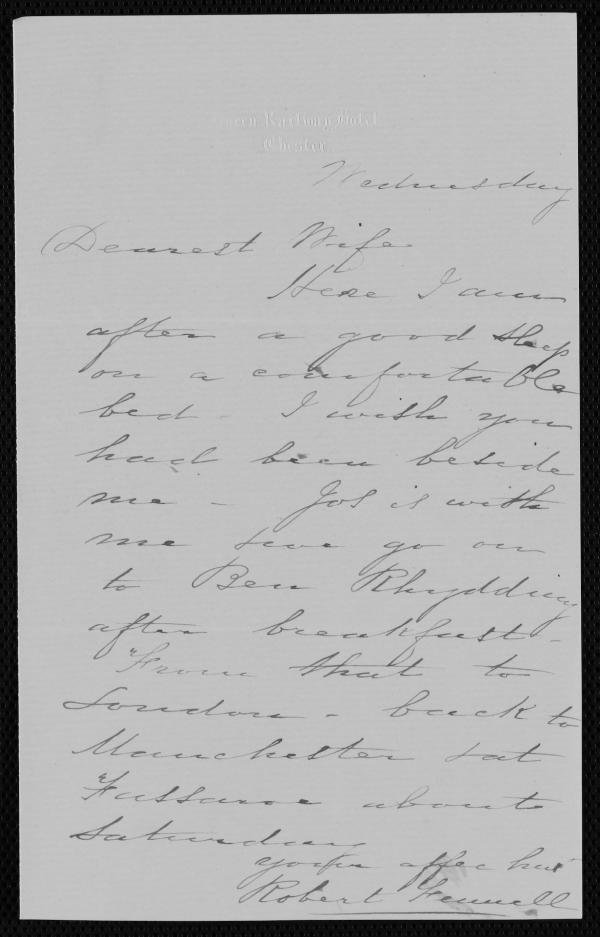 Queen Railway Hotel
Chester
Wednesday
Dearest Wife
Here I am
after a good sleep
on a comfortable
bed - I wish you
had been beside
me - Jos is with
me & we go on
to Ben Rhydding
after breakfast -
From that to
London - back to
Manchester & at
Fassaroe about
Saturday
your affec hus
Robert Fennell